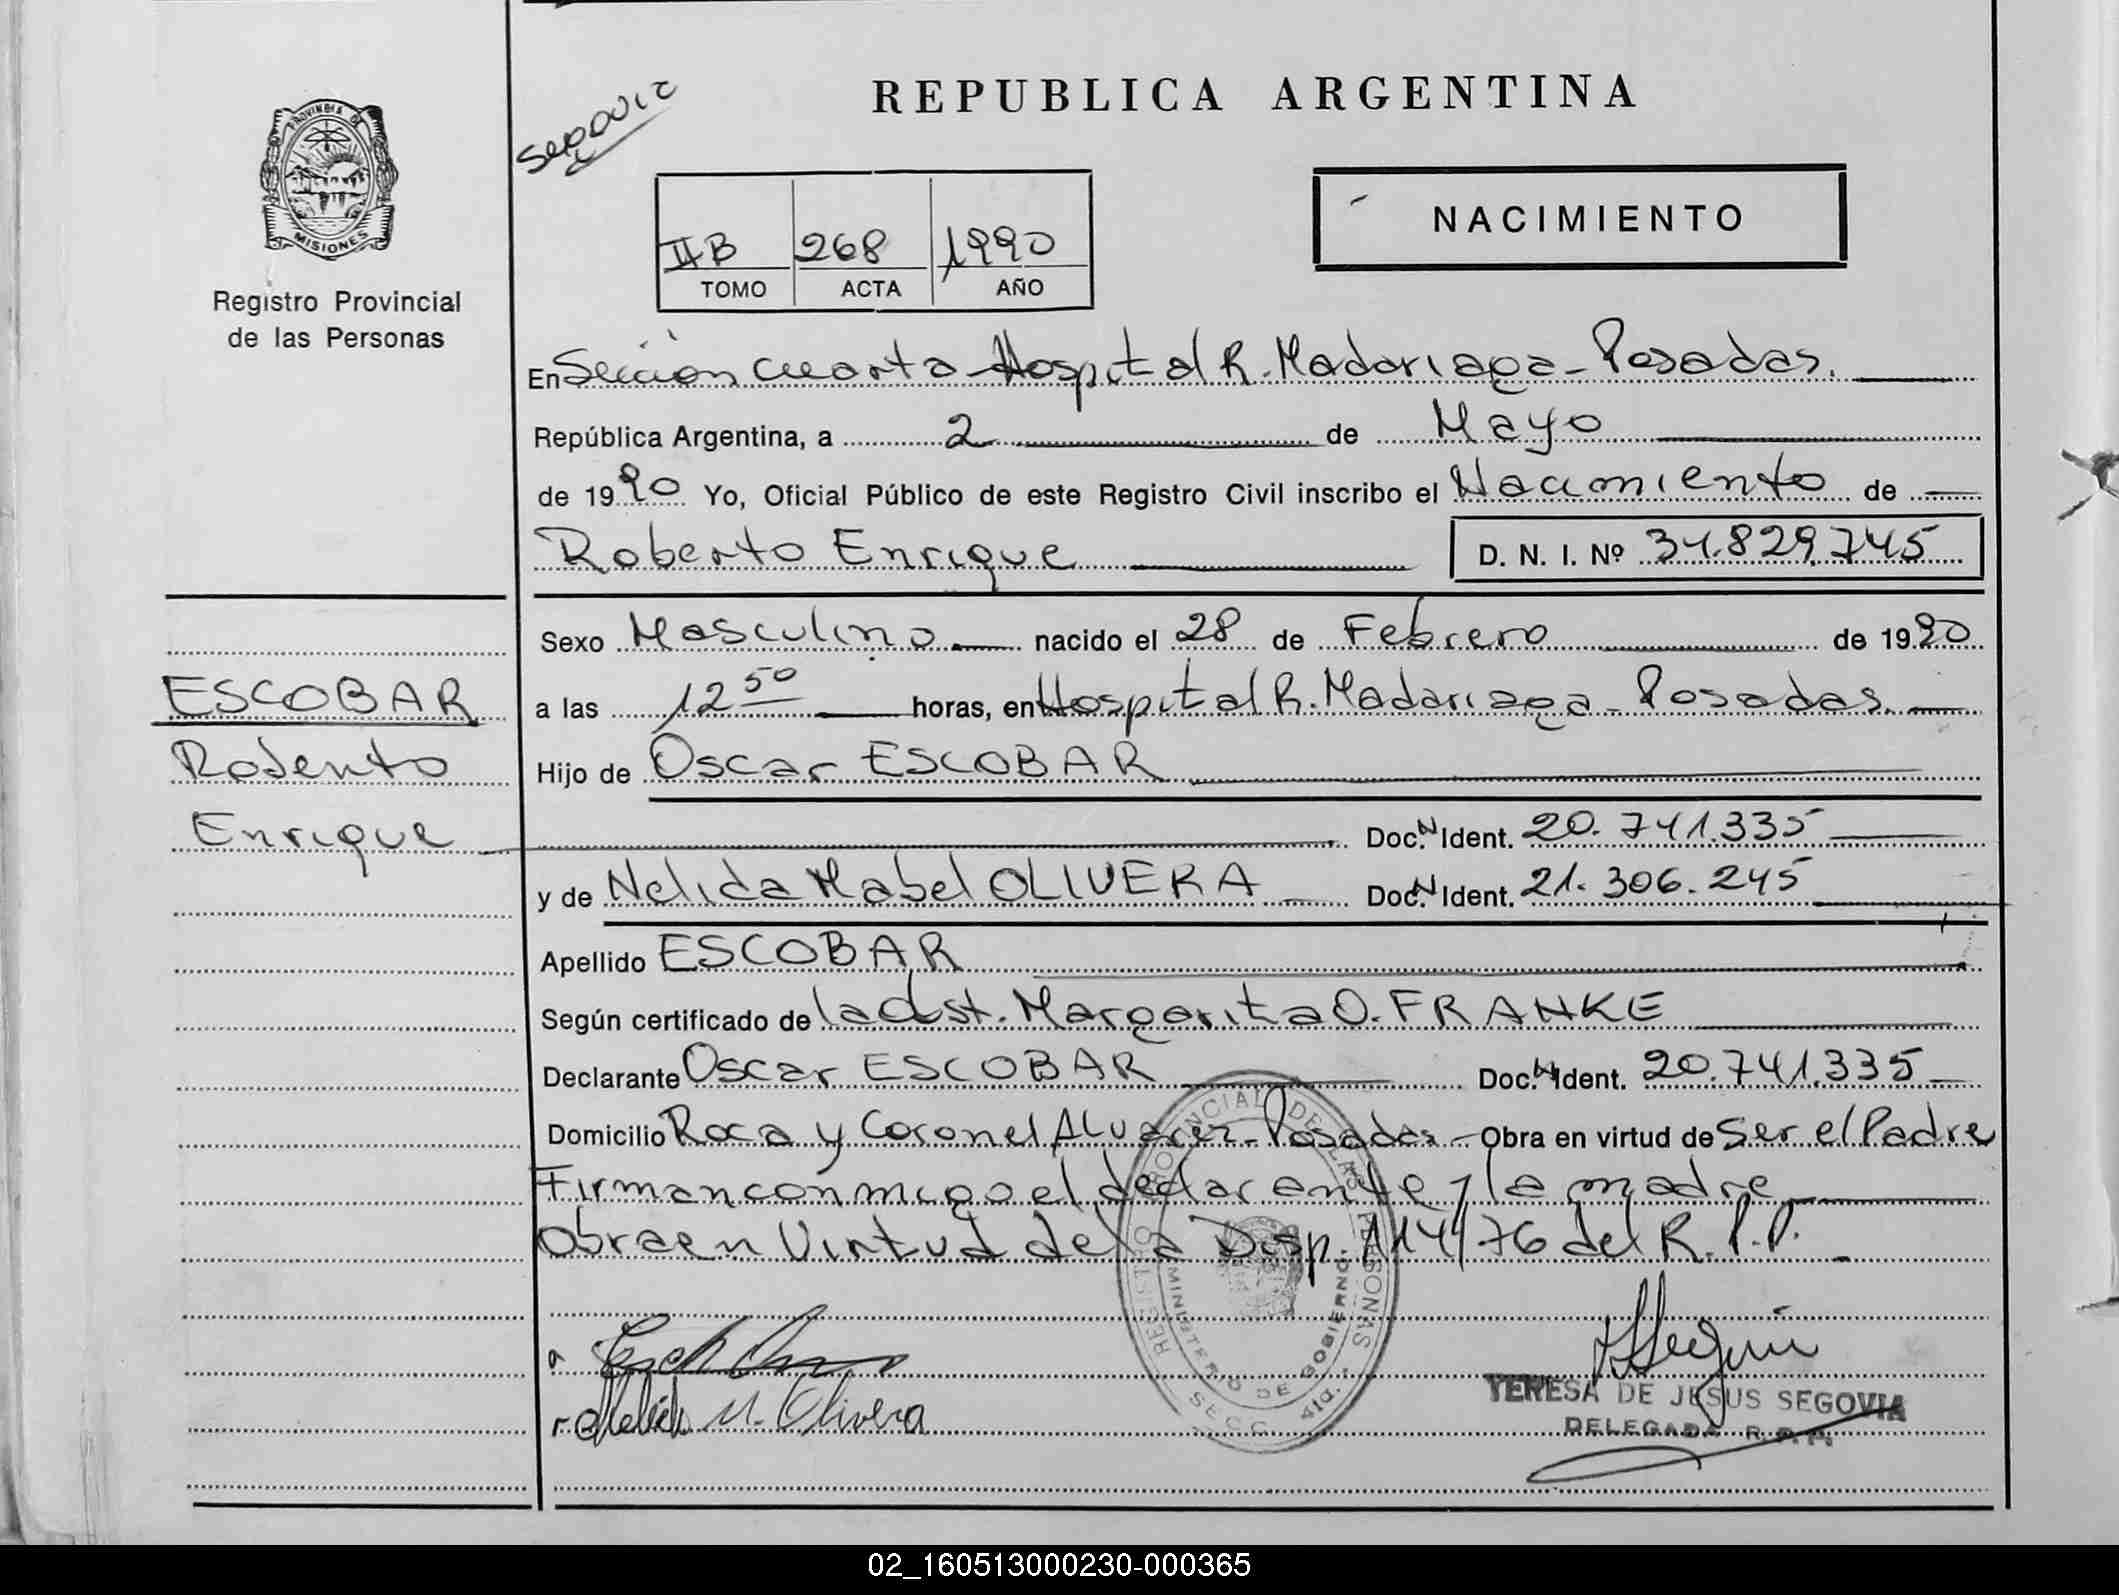 PROVINCIA DE
MISIONES
Registro Provincial
de las Personas
REPUBLICA ARGENTINA
NACIMIENTO
IIB 268 1990
TOMO ACTA AÑO
En Sección Cuarta - Hospital R. Madariaga - Posadas.
República Argentina, a 2 de Mayo
de 1990 Yo, Oficial Público de este Registro Civil inscribo el Nacimiento de
Roberto Enrique D. N. I. Nº 34.829.745
Sexo Masculino nacido el 28 de Febrero de 1990
a las 12 50 horas, en Hospital R. Madariaga - Posadas.
Hijo de Oscar ESCOBAR
Doc. N Ident. 20.741.335
y de Nelida Mabel OLIVERA Doc. N Ident. 21.306.245
Apellido ESCOBAR
Según certificado de la Obst. Margarita O. FRANKE
Declarante Oscar ESCOBAR Doc. N Ident. 20.741.335
Domicilio Roca y Coronel Alvarez - Posadas - Obra en virtud de Ser el Padre
Firman conmigo el declarante y la madre
Obra en Virtud de la Disp. 114/76 del R.P.P.
ESCOBAR
Roberto
Enrique
REGISTRO PROVINCIAL DE LAS PERSONAS
MINISTERIO DE GOBIERNO
SECC. 4ta.
M. Olivera
TERESA DE JESUS SEGOVIA
DELEGADA R. P. P.
02_160513000230-000365